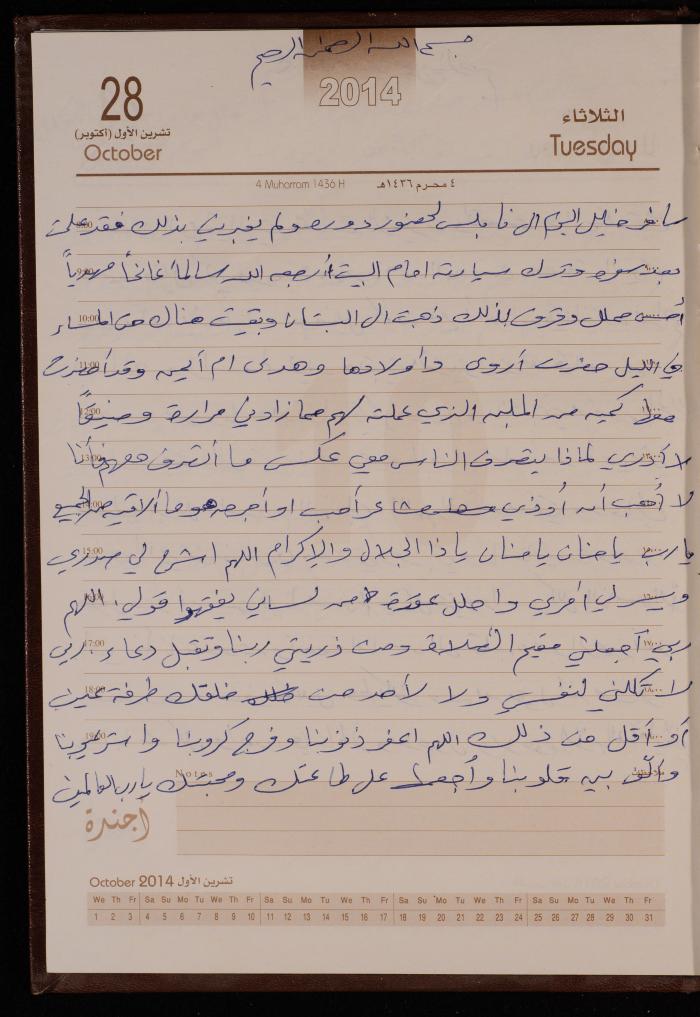 بسم الله الرحمن الرحيم
2014
28
تشرين الأول (أكتوبر)
October
الثلاثاء
Tuesday
4 Muharram 1436 H
٤ محرم ١٤٣٦هـ
سافر خليل اليوم الى نابلس لحضور دورة ولم يخبرني بذلك فقد علمت
بعد سفره وترك سيارته امام البيت أرجعه الله سالماً غانماً مهدياً
أحسس بملل وقرف لذلك ذهبت الى البستان وبقيت هناك حتى المساء
في الليل حضرت أروى وأولادها وهدى ام أيمن وقد أحضرت
معها كمية من الملبن الذي عملته لهم مما زادني مرارة وضيقاً
لا أدري لماذا يتصرف الناس معي عكس ما أتصرف معهم فأنا
لا أحب أن أوذي مشاعر أحب او أجرحه وما ألاقيه من الجميع
يا رب يا حنان يا منان يا ذا الجلال والإكرام اللهم اشرح لي صدري
ويسر لي أمري واحلل عقدة من لساني يفقهوا قولي. اللهم
ربي أجعلني مقيم الصلاة ومن ذريتي ربنا وتقبل دعاء. ربي
لا تكلني لنفسي ولا لأحد من خلقك طرفة عين
أو أقل من ذلك اللهم اغفر ذنوبنا وفرج كروبنا واستر عيوبنا
وألف بين قلوبنا وأجمعها على طاعتك ومحبتك يا رب العالمين
Notes
أجندة
October 2014 تشرين الأول
We Th Fr Sa Su Mo Tu We Th Fr Sa Su Mo Tu We Th Fr Sa Su Mo Tu We Th Fr Sa Su Mo Tu We Th Fr
1 2 3 4 5 6 7 8 9 10 11 12 13 14 15 16 17 18 19 20 21 22 23 24 25 26 27 28 29 30 31